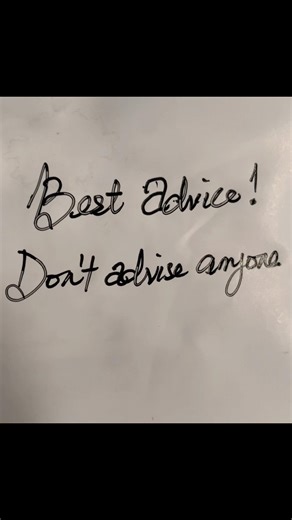 Best advice!
Don't advise anyone